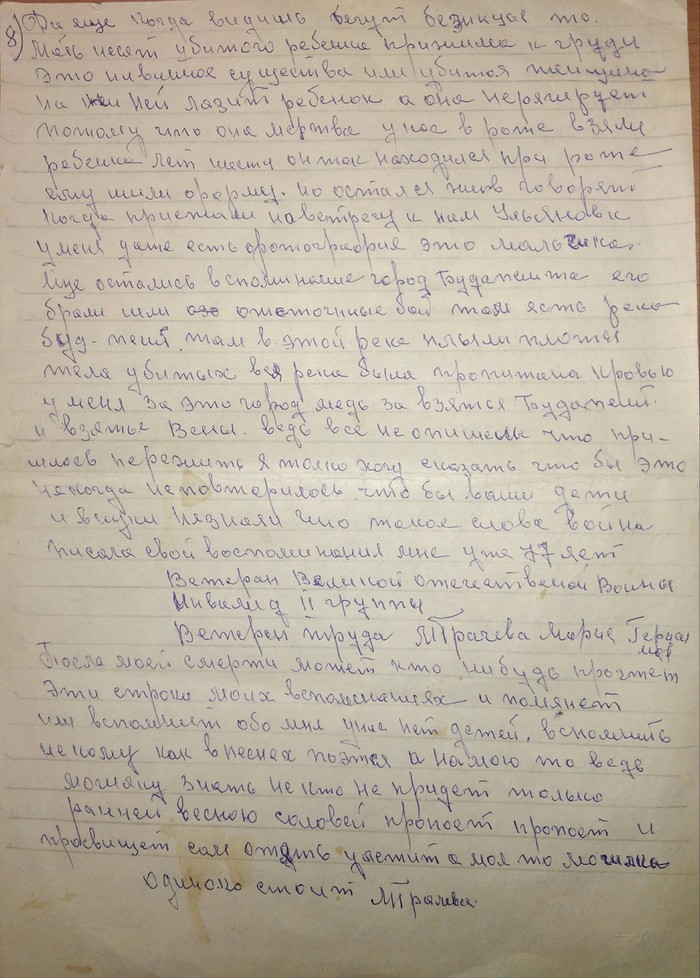 8) Да еще когда видишь бегут безикцые то.
Мать несет убитого ребенка прижима к груди
это нивимное существа или убитоя женщина
на ней лазит ребенок а она нерягирует
потому что она мертва у нас в роте взяли
ребенка лет шести он так находился при роте
ему шили форму. но остался жив говорят
когда приежали на встречу к нам Ульяновк
у меня даже есть фотография это мальчика.
Еще остались вспоминание город Будапешта его
брали шли ожесточные бой там есть река
Буд-пешт там в этой река плыли плотья
тела убитых вся река была пропитана кровью
у меня за это город медь за взятся Будапешт.
и взятье Вены. ведь все не опишешь что при-
шлось пережить я толко хочу сказать что бы это
некогда неповтерилось что бы ваши дети
и внуки незнали что такое слова война
писала свой воспоминания мне уже 77 лет
Ветеран Великой отечественой Воины
Инвалид II группы
Ветеран труда МТрачева Мария Герцас
мов
После моей смерти может кто нибудь прочтет
эти строки моих вспоминаниях и помянет
или вспомнит обо мне у нас нет детей. вспомнить
некому как в песнах поэтся а на мою то ведь
могилку знать не кто не придет только
ранней весною соловей пропоет пропоет и
просвищет сам опять улетит а моя то могилка
одиноко стоит МТрачева.